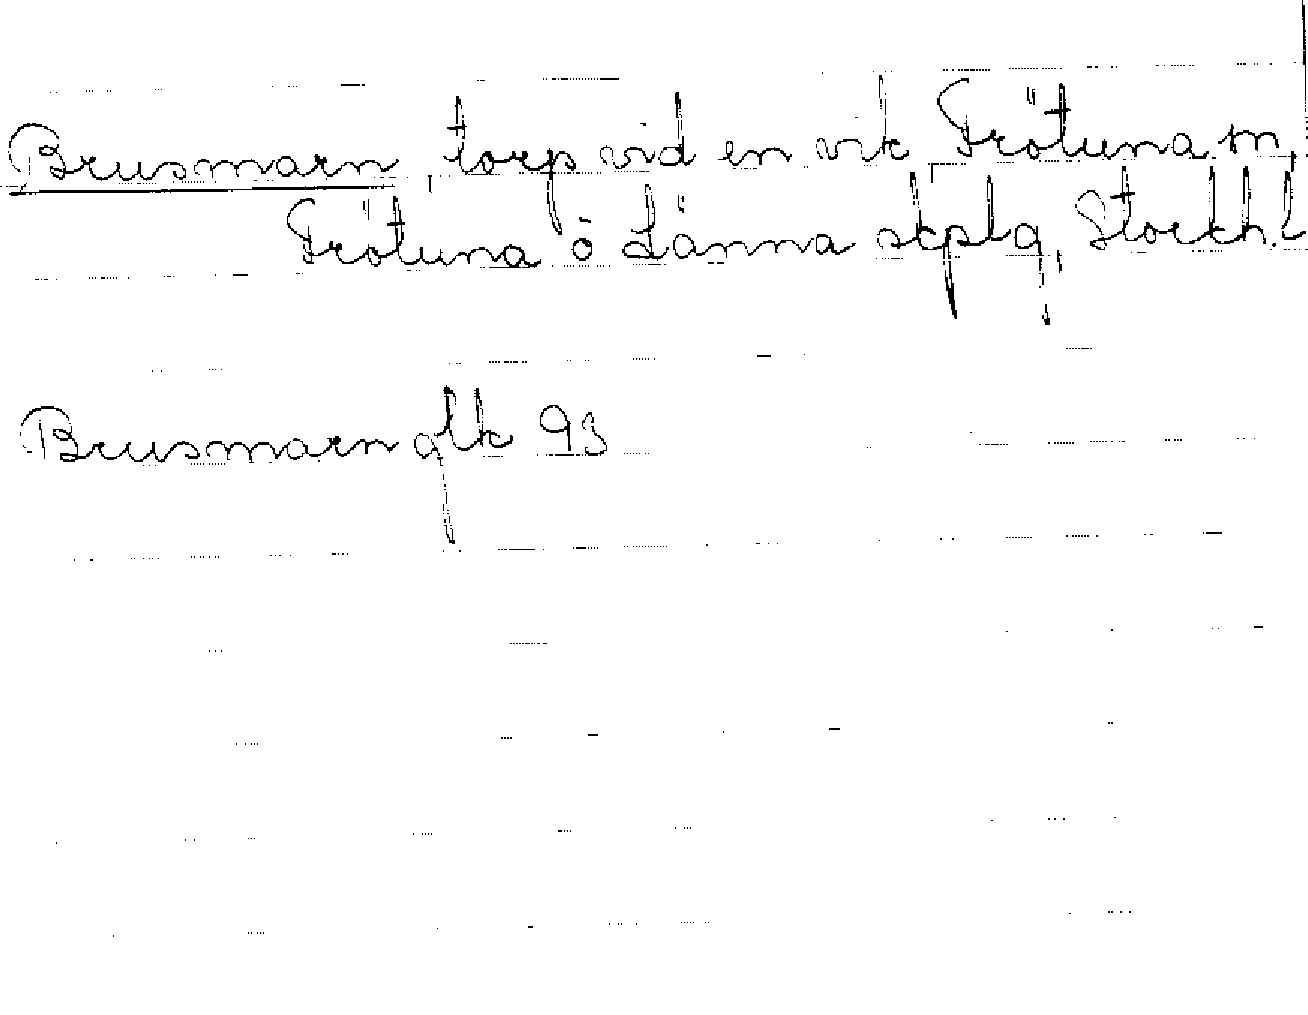 Brusmarn, torp vid en vik, Frötuna m,
Frötuna o Länna skplg, Stockh.l
Brusmarn glk 93